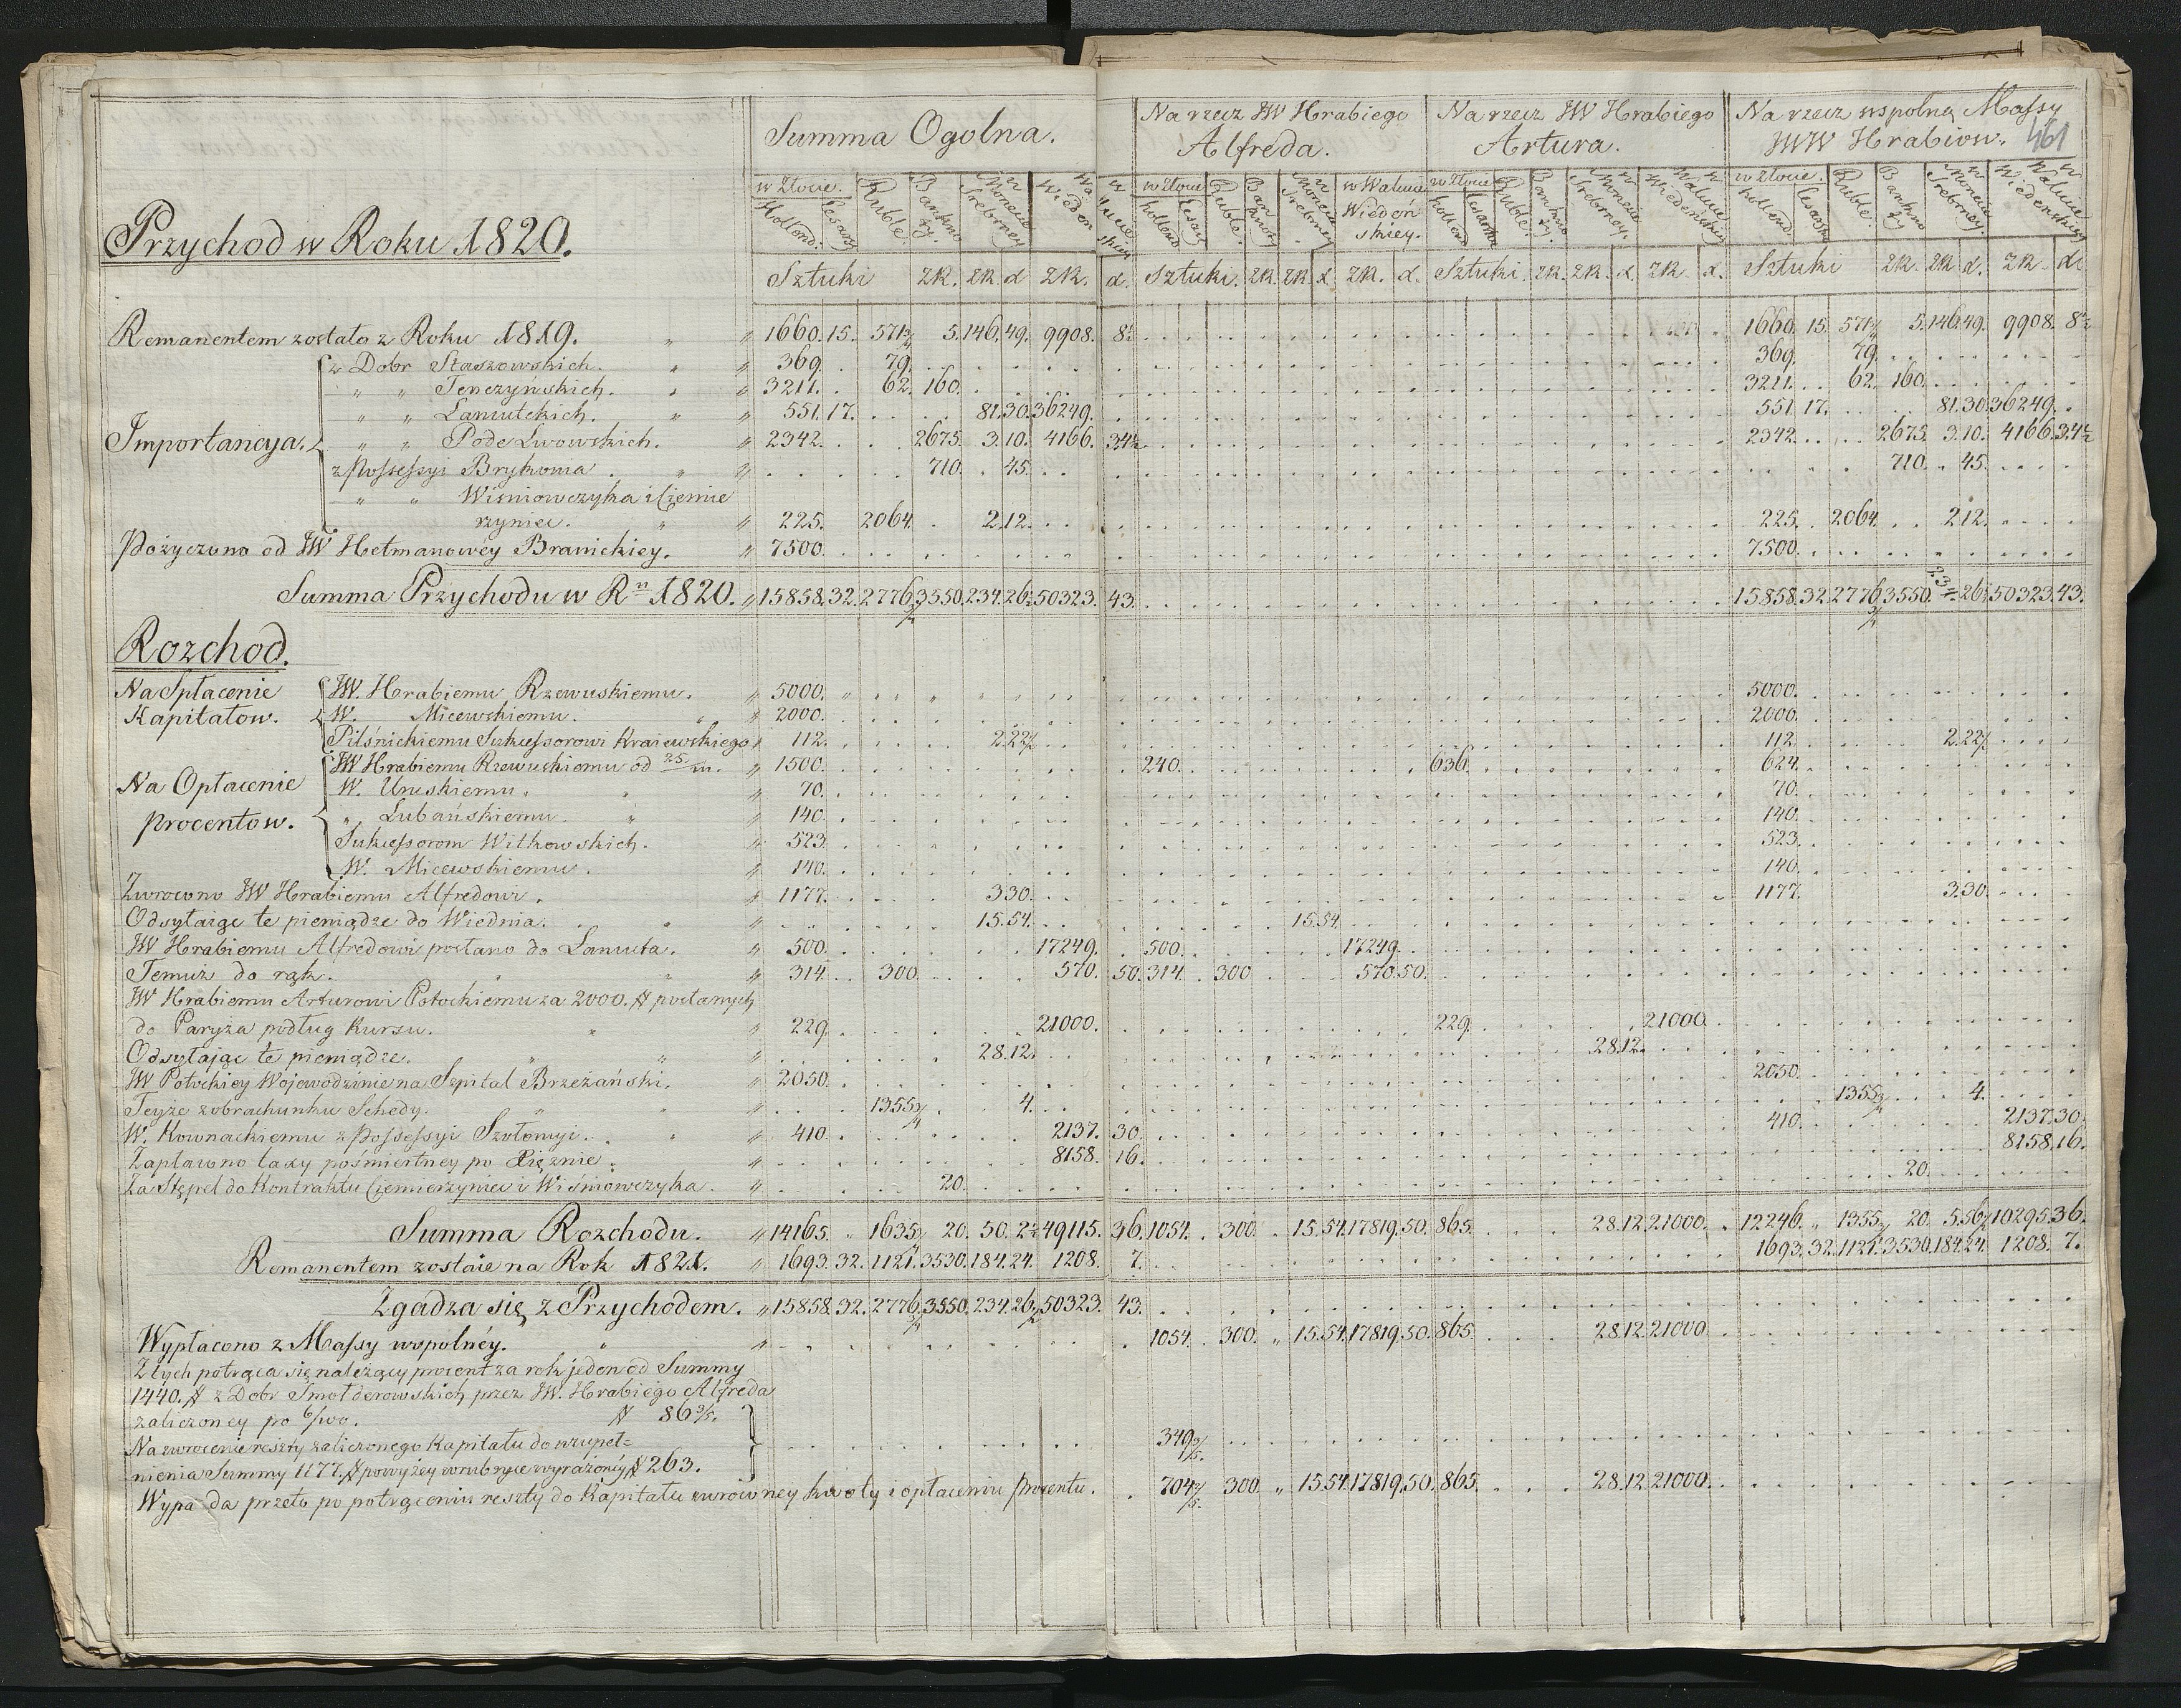 Summa Ogolna.
Na rzecz JW Hrabiego Alfreda.
Na rzecz JW Hrabiego Artura.
Na rzecz wspolney Massy JWW Hrabiow. 461
w Złocie. Holland: Cesarz Ruble Bankno ty. w Monecie Srebrney w Walucie Wiedeń skiey
w Złocie Holland Cesarz Ruble. Ban knoty w Monecie Srebrney w Walucie Wiedeń skiey.
w Złocie Holland Cesarskie Ruble. Bankno ty. w Monecie Srebrney. w Walucie Wiedeńskiey
w Złocie. Holland. Cesarskie Ruble. Bankno ty w Monecie Srebrney. w Walucie Wiedenskiey
Przychod w Roku 1820.
Sztuki ZR. ZR d ZR. d. Sztuki. ZR. ZR. d ZR. d. Sztuki. ZR. ZR. d. ZR. d. Sztuki ZR. ZR d. ZR. d.
Remanentem zostało z Roku 1819. " " 1660. 15. 571 3/4 5. 146. 49. 9908. 8½ 1660. 15. 571 3/4 5. 146. 49. 9908. 8½
z Dobr Staszowskich. " " 369. 79. 369. 79.
" " Tenczyńskich. " " 3211. 62. 160. 3211. 62. 160.
" " Lancutckich. " " 551. 17. 81. 30. 36249. 551. 17. 81. 30. 36249.
Importancya. " " Pode Lwowskich. " 2342. 2675. 3. 10. 4166. 34½ 2342. 2675. 3. 10. 4166. 34½
z Possessyi Brykonia. " " 710. 45. 710. 45.
" " Wiśniowczyka i Ciemie
rzyniec. " " 225. 2064. 2. 12. 225. 2064. 2. 12.
Pożyczono od JW Hetmanowéy Branickiey. " 7500. 7500.
Summa Przychodu w Rn 1820. " 15858. 32. 2776 3/4 3550. 234. 26½ 50323. 43. 15858. 32. 2776 3/4 3550. 234. 26½ 50323. 43.
Rozchod.
Na Spłacenie JW. Hrabiemu Rzewuskiemu. " 5000. 5000.
Kapitałow. W. Micewskiemu. " " 2000. 2000.
Pilśnickiemu Sukcessorowi Kraiewskiego " 112. 2. 22½ 112. 2. 22½
JW Hrabiemu Rzewuskiemu od 25/m. " 1500. 240. 636. 624.
Na Opłacenie W. Uruskiemu. " " 70. 70.
procentow. " Lubańskiemu. " " 140. 140.
Sukcessorom Witkowskich. " 523. 523.
W. Micewskiemu. " 140. 140.
Zwrocono JW Hrabiemu Alfredowi. " 1177. 3. 30. 1177. 3. 30.
Odsyłaiąc te pieniądze do Wiednia. " " 15. 54. 15. 54.
JW Hrabiemu Alfredowi posłano do Lancuta. " 500. 17249. 500. 17249.
Temuż do rąk. " " " 314. 300. 570. 50. 314. 300 570. 50.
JW Hrabiemu Arturowi Potockiemu za 2000. # posłanych
do Paryża podług kursu. " " 229. 21000. 229. 21000.
Odsyłając te pieniądze. " " " 28. 12. 28. 12.
JW Potockiey Wojewodzinie na Szpital Brzeżański. " 2050. 2050.
Teyże z obrachunku Schedy. " " " 1355 3/4 4. 1355 3/4 4.
W. Kownackiemu z Possessyi Szołomyi. " " 410. 2137. 30. 410. 2137. 30.
Zapłacono taxy pośmiertney po Xiężnie. " 8158. 16. 8158. 16.
Za Stępel do Kontraktu Ciemierzyniec i Wiśniowczyka. " 20. 20.
Summa Rozchodu. " 14165. " 1655 3/4 20. 50. 2½ 49115. 36. 1054. 300. 15. 54. 17819. 50. 865. 28. 12. 21000. " 12246. " 1355 3/4 20. 5. 56½ 10295. 36.
Remanentem zostaie na Rok 1821. " 1693. 32. 1121. 3530. 184. 24. 1208. 7. 1693. 32. 1121. 3530. 184. 24. 1208. 7.
Zgadza się z Przychodem. " 15858. 32. 2776 3/4 3550. 234. 26½ 50323. 43.
Wypłacono z Massy wspolnéy. " " 1054. 300. " 15. 54. 17819. 50. 865. 28. 12. 21000.
Z tych potrąca się należący procent za rok jeden od Summy
1440. # z Dobr Smołderowskich przez JW. Hrabiego Alfreda
zaliczoney po 6/100. # 86 2/5.
Na zwrocenie reszty zaliczonego Kapitału do uzupeł=
nienia Summy 1177. # powyżey w rubryce wyrażonéy # 263. 349 2/5.
Wypada przeto po potrąceniu reszty do Kapitału zwrotney kwoty i opłaceniu procentu. 704 3/5. 300. " 15. 54. 17819. 50. 865. 28. 12. 21000.